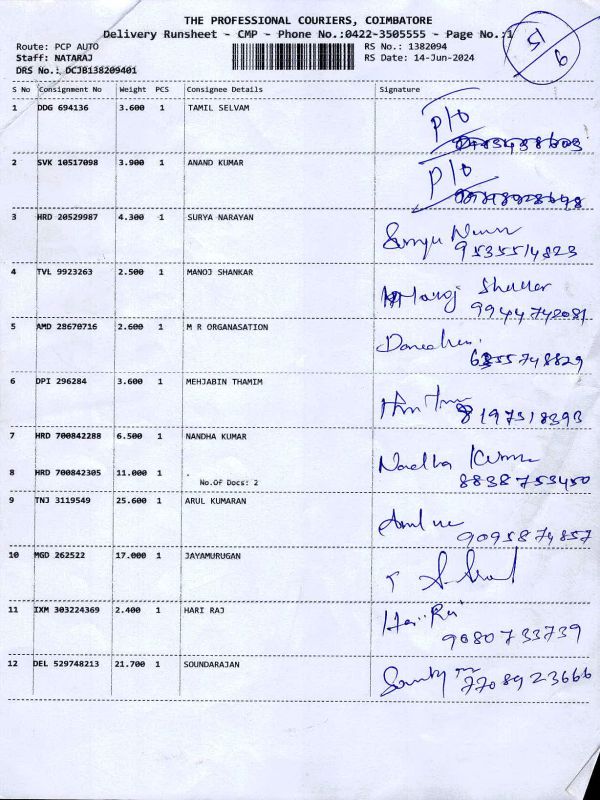 THE PROFESSIONAL COURIERS, COIMBATORE
Delivery Runsheet - CMP - Phone No.:0422-3505555 - Page No.:1
Route: PCP AUTO RS No.: 1382094
Staff: NATARAJ RS Date: 14-Jun-2024
DRS No.: DCJB138209401
15
9
S No Consignment No Weight PCS Consignee Details Signature
1 DDG 694136 3.600 1 TAMIL SELVAM P/O
2 SVK 10517098 3.900 1 ANAND KUMAR P/O
3 HRD 20529987 4.300 1 SURYA NARAYAN
9535514823
4 TVL 9923263 2.500 1 MANOJ SHANKAR Manoj
9944742081
5 AMD 28670716 2.600 1 M R ORGANASATION
6355748829
6 DPI 296284 3.600 1 MEHJABIN THAMIM
8197318393
7 HRD 700842288 6.500 1 NANDHA KUMAR Nandha Kumar
8 HRD 700842305 11.000 1 . 8838753450
No.Of Docs: 2
9 TNJ 3119549 25.600 1 ARUL KUMARAN
9095874857
10 MGD 262522 17.000 1 JAYAMURUGAN
11 IXM 303224369 2.400 1 HARI RAJ Hari Raj
9080733739
12 DEL 529748213 21.700 1 SOUNDARAJAN
7708923666